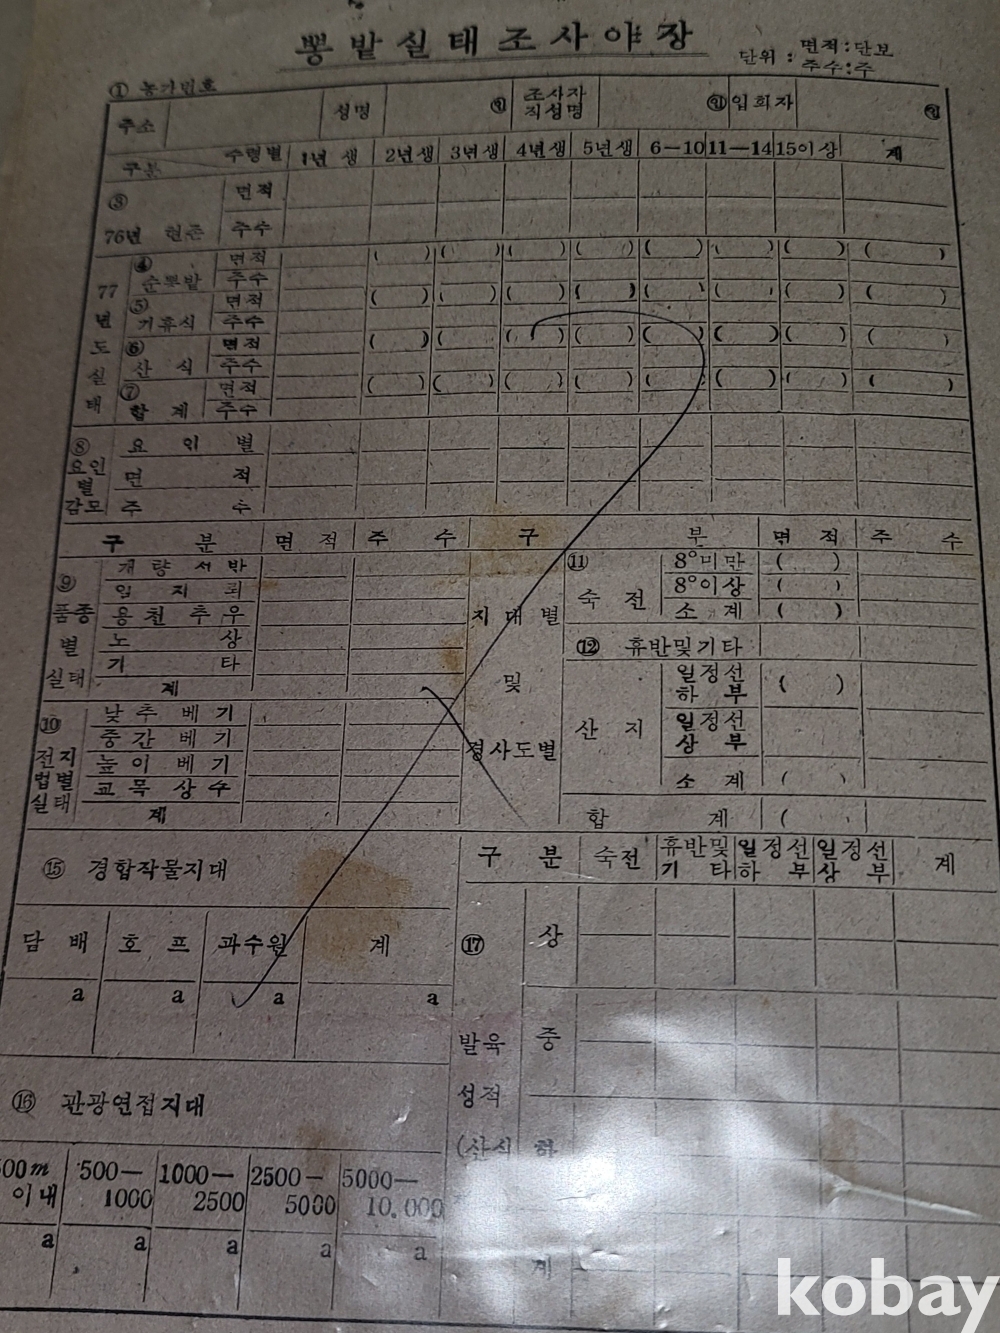 뽕밭실태조사야장
단위 : 면적:단보
주수:주
① 농가번호
주소 성명 ㊞ 조사자 직성명 ㊞ 입회자 ㊞
구분 수령별 1년생 2년생 3년생 4년생 5년생 6—10 11—14 15이상 계
③ 76년 현존 면적
주수
77년도실태
④ 순뽕밭 면적 ( ) ( ) ( ) ( ) ( ) ( ) ( ) ( )
주수
⑤ 거휴식 면적 ( ) ( ) ( ) ( ) ( ) ( ) ( ) ( )
주수
⑥ 산식 면적 ( ) ( ) ( ) ( ) ( ) ( ) ( ) ( )
주수
⑦ 합계 면적 ( ) ( ) ( ) ( ) ( ) ( ) ( ) ( )
주수
⑧ 요인별감모 요인별
면적
주수
구분 면적 주수 구분 면적 주수
⑨ 품종별실태
개량서반
일지뢰
용천추우
노상
기타
계
⑩ 전지법별실태
낮추베기
중간베기
높이베기
교목상수
계
지대별 및 경사도별
⑪ 숙전 8°미만 ( )
8°이상 ( )
소계 ( )
⑫ 휴반및기타
산지 일정선하부 ( )
일정선상부
소계 ( )
합계 ( )
⑮ 경합작물지대
담배 호프 과수원 계
a a a a
⑯ 관광연접지대
500m이내 500—1000 1000—2500 2500—5000 5000—10,000
a a a a a
구분 숙전 휴반및기타 일정선하부 일정선상부 계
⑰ 발육성적 (산식
상
중
하
계
kobay